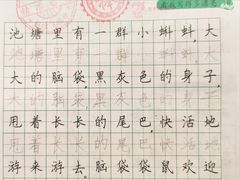 池塘里有一群小蝌蚪，大
大的脑袋，黑灰色的身子，
甩着长长的尾巴，快活地
游来游去。脑袋袋鼠欢迎